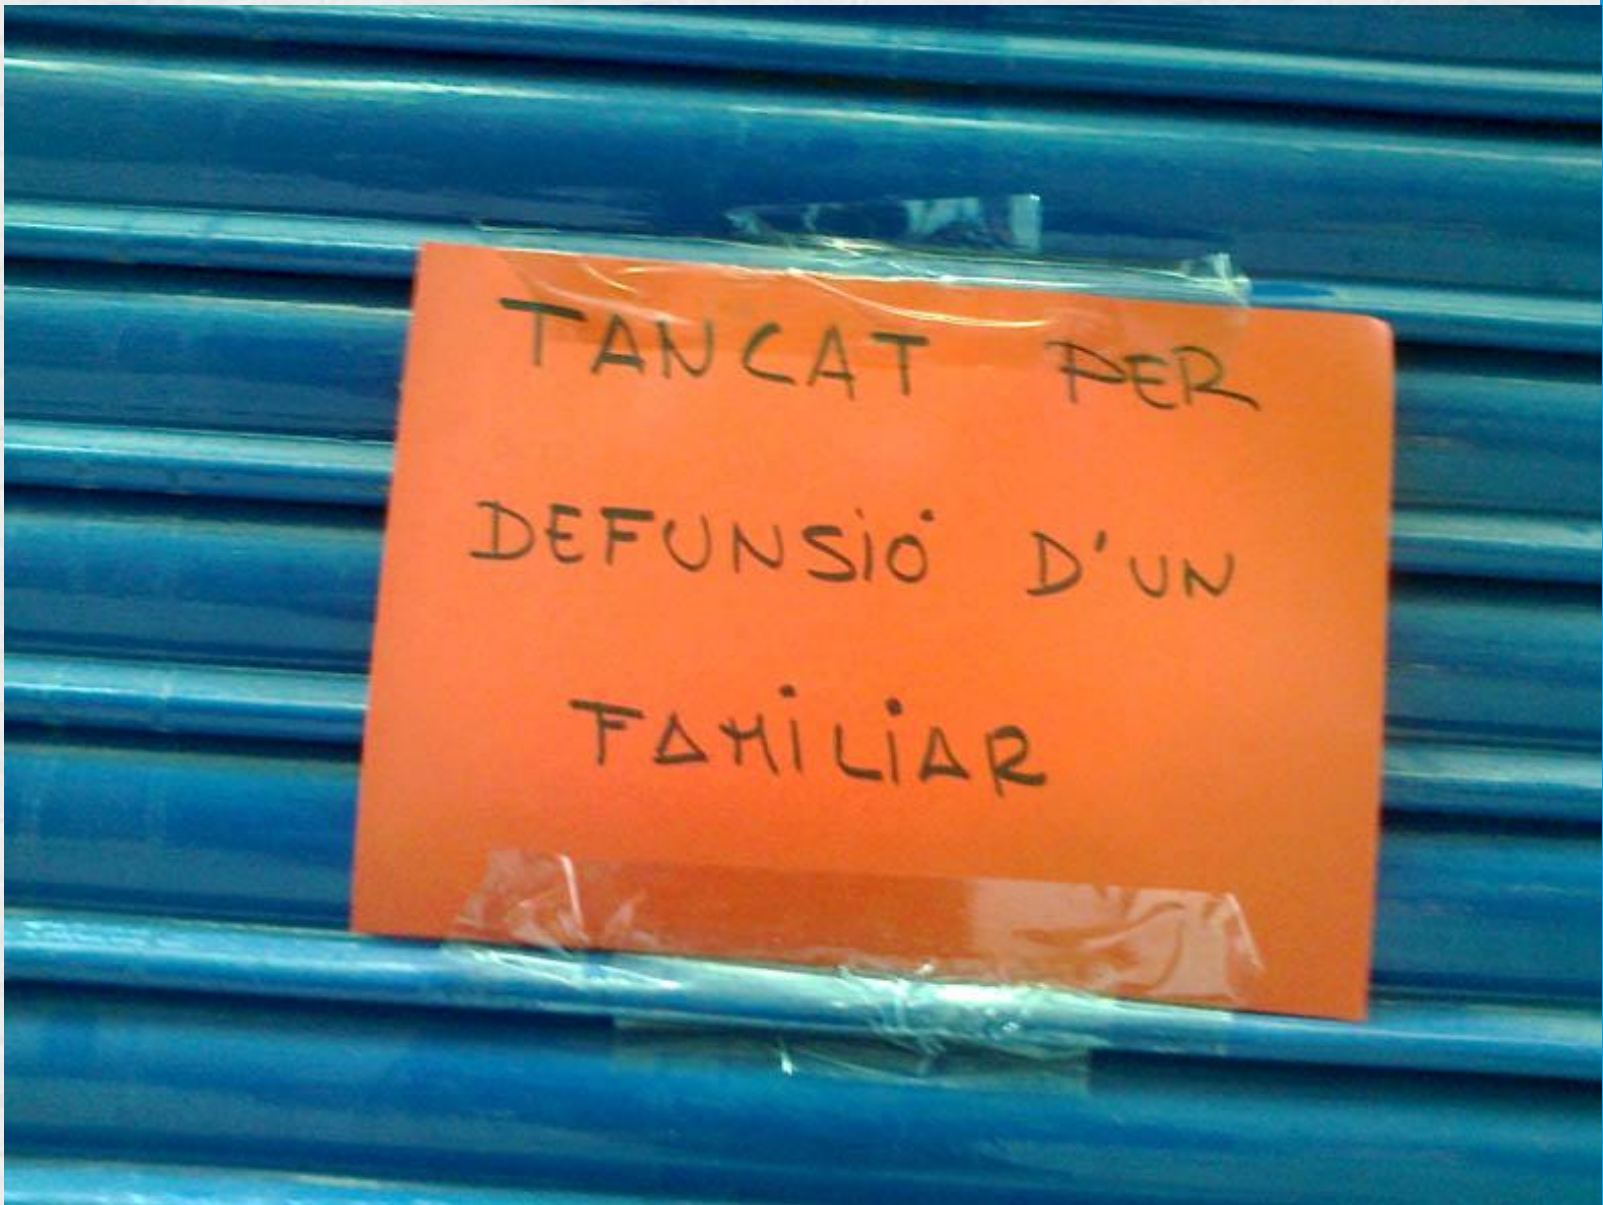 TANCAT PER
DEFUNSIÓ D'UN
FAMILIAR